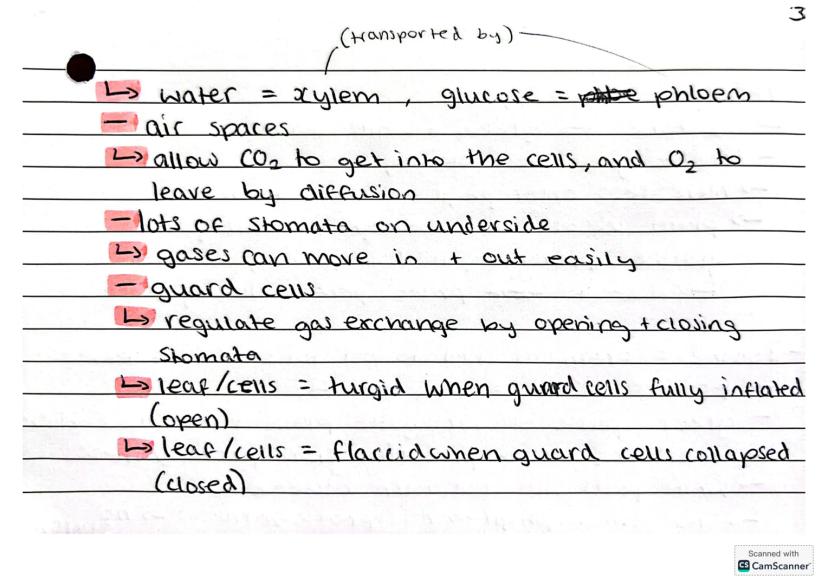 3
(transported by)
↳ water = xylem, glucose = phloem
- air spaces
↳ allow CO₂ to get into the cells, and O₂ to
leave by diffusion
- lots of stomata on underside
↳ gases can move in + out easily
- guard cells
↳ regulate gas exchange by opening + closing
stomata
↳ leaf/cells = turgid when guard cells fully inflated
(open)
↳ leaf/cells = flaccid when guard cells collapsed
(closed)
Scanned with
CS CamScanner